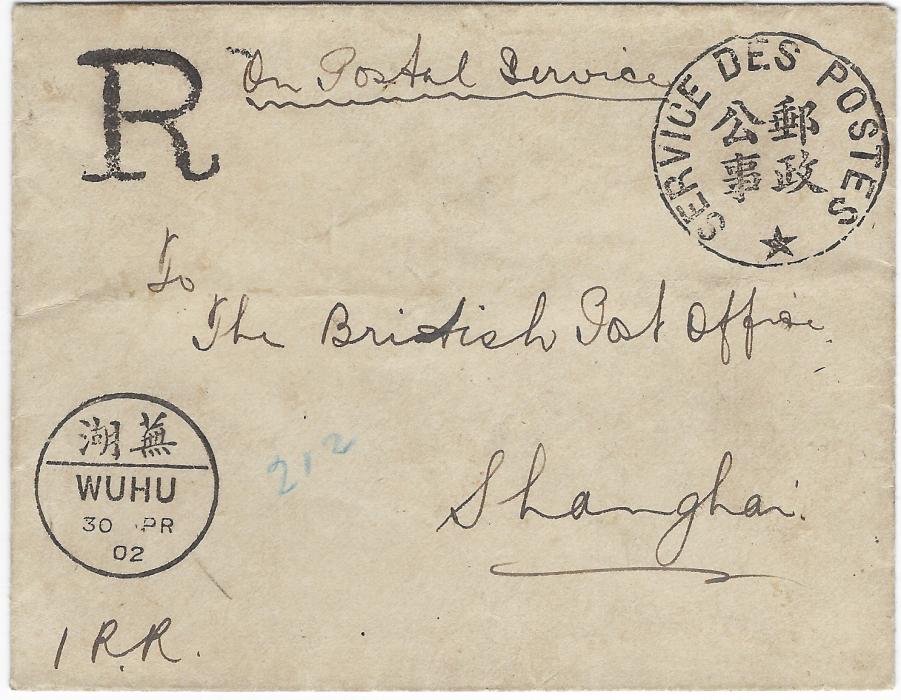 R
On Postal Service
SERVICE DES POSTES
郵政
公事
To
The British Post Office
Shanghai.
湖蕪
WUHU
30 PR
02
212
1 R.R.